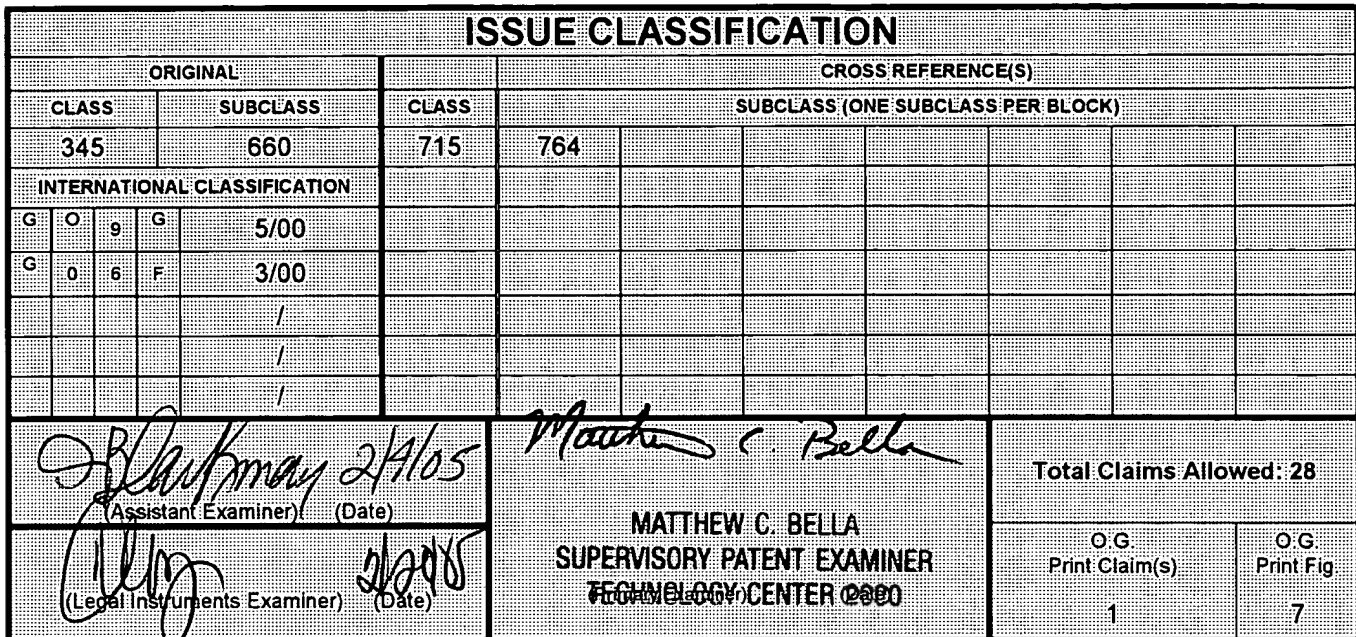 ISSUE CLASSIFICATION
ORIGINAL CROSS REFERENCE(S)
CLASS SUBCLASS CLASS SUBCLASS (ONE SUBCLASS PER BLOCK)
345 660 715 764
INTERNATIONAL CLASSIFICATION
G O 9 G 5/00
G 0 6 F 3/00
/
/
/
2/4/05
(Assistant Examiner) (Date)
(Legal Instruments Examiner) (Date)
Matthew C. Bella
MATTHEW C. BELLA
SUPERVISORY PATENT EXAMINER
TECHNOLOGY CENTER
Total Claims Allowed: 28
O.G. Print Claim(s)
1
O.G. Print Fig
7